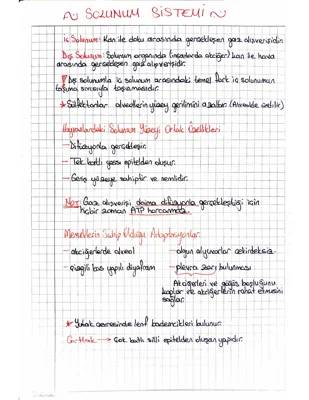 ~ SOLUNUM SİSTEMİ ~
İç Solunum: Kan ile doku arasında gerçekleşen gaz alışverişidir.
Dış Solunum: Solunum organında (insanlarda akciğer) kan ile hava
arasında gerçekleşen gaz alışverişidir.
Dış solunumla iç solunum arasındaki temel fark iç solunumun
taşıma sıvısıyla taşınmasıdır.
* Sülfektanlar alveollerin yüzey gerilimini azaltır.
Hayvanlardaki Solunum Yüzeyi Ortak Özellikleri
- Difüzyonla gerçekleşir.
- Tek katlı yassı epitelden oluşur.
- Geniş yüzeye sahiptir ve nemlidir.
Not: Gaz alışverişi daima difüzyonla gerçekleştiği için
hiçbir zaman ATP harcanmaz.
Memelilerin Sahip Olduğu Adaptasyonlar
- akciğerlerde alveol - olgun alyuvarlar çekirdeksiz
- çizgili kas yapılı diyafram - pleura zarı bulunması
Akciğerleri ve göğüs boşluğunu
kaplar ve akciğerlerin rahat etmesini
sağlar.
* Yutak çevresinde lenf bademcikleri bulunur.
çok katlı silli epitelden oluşan yapıdır.